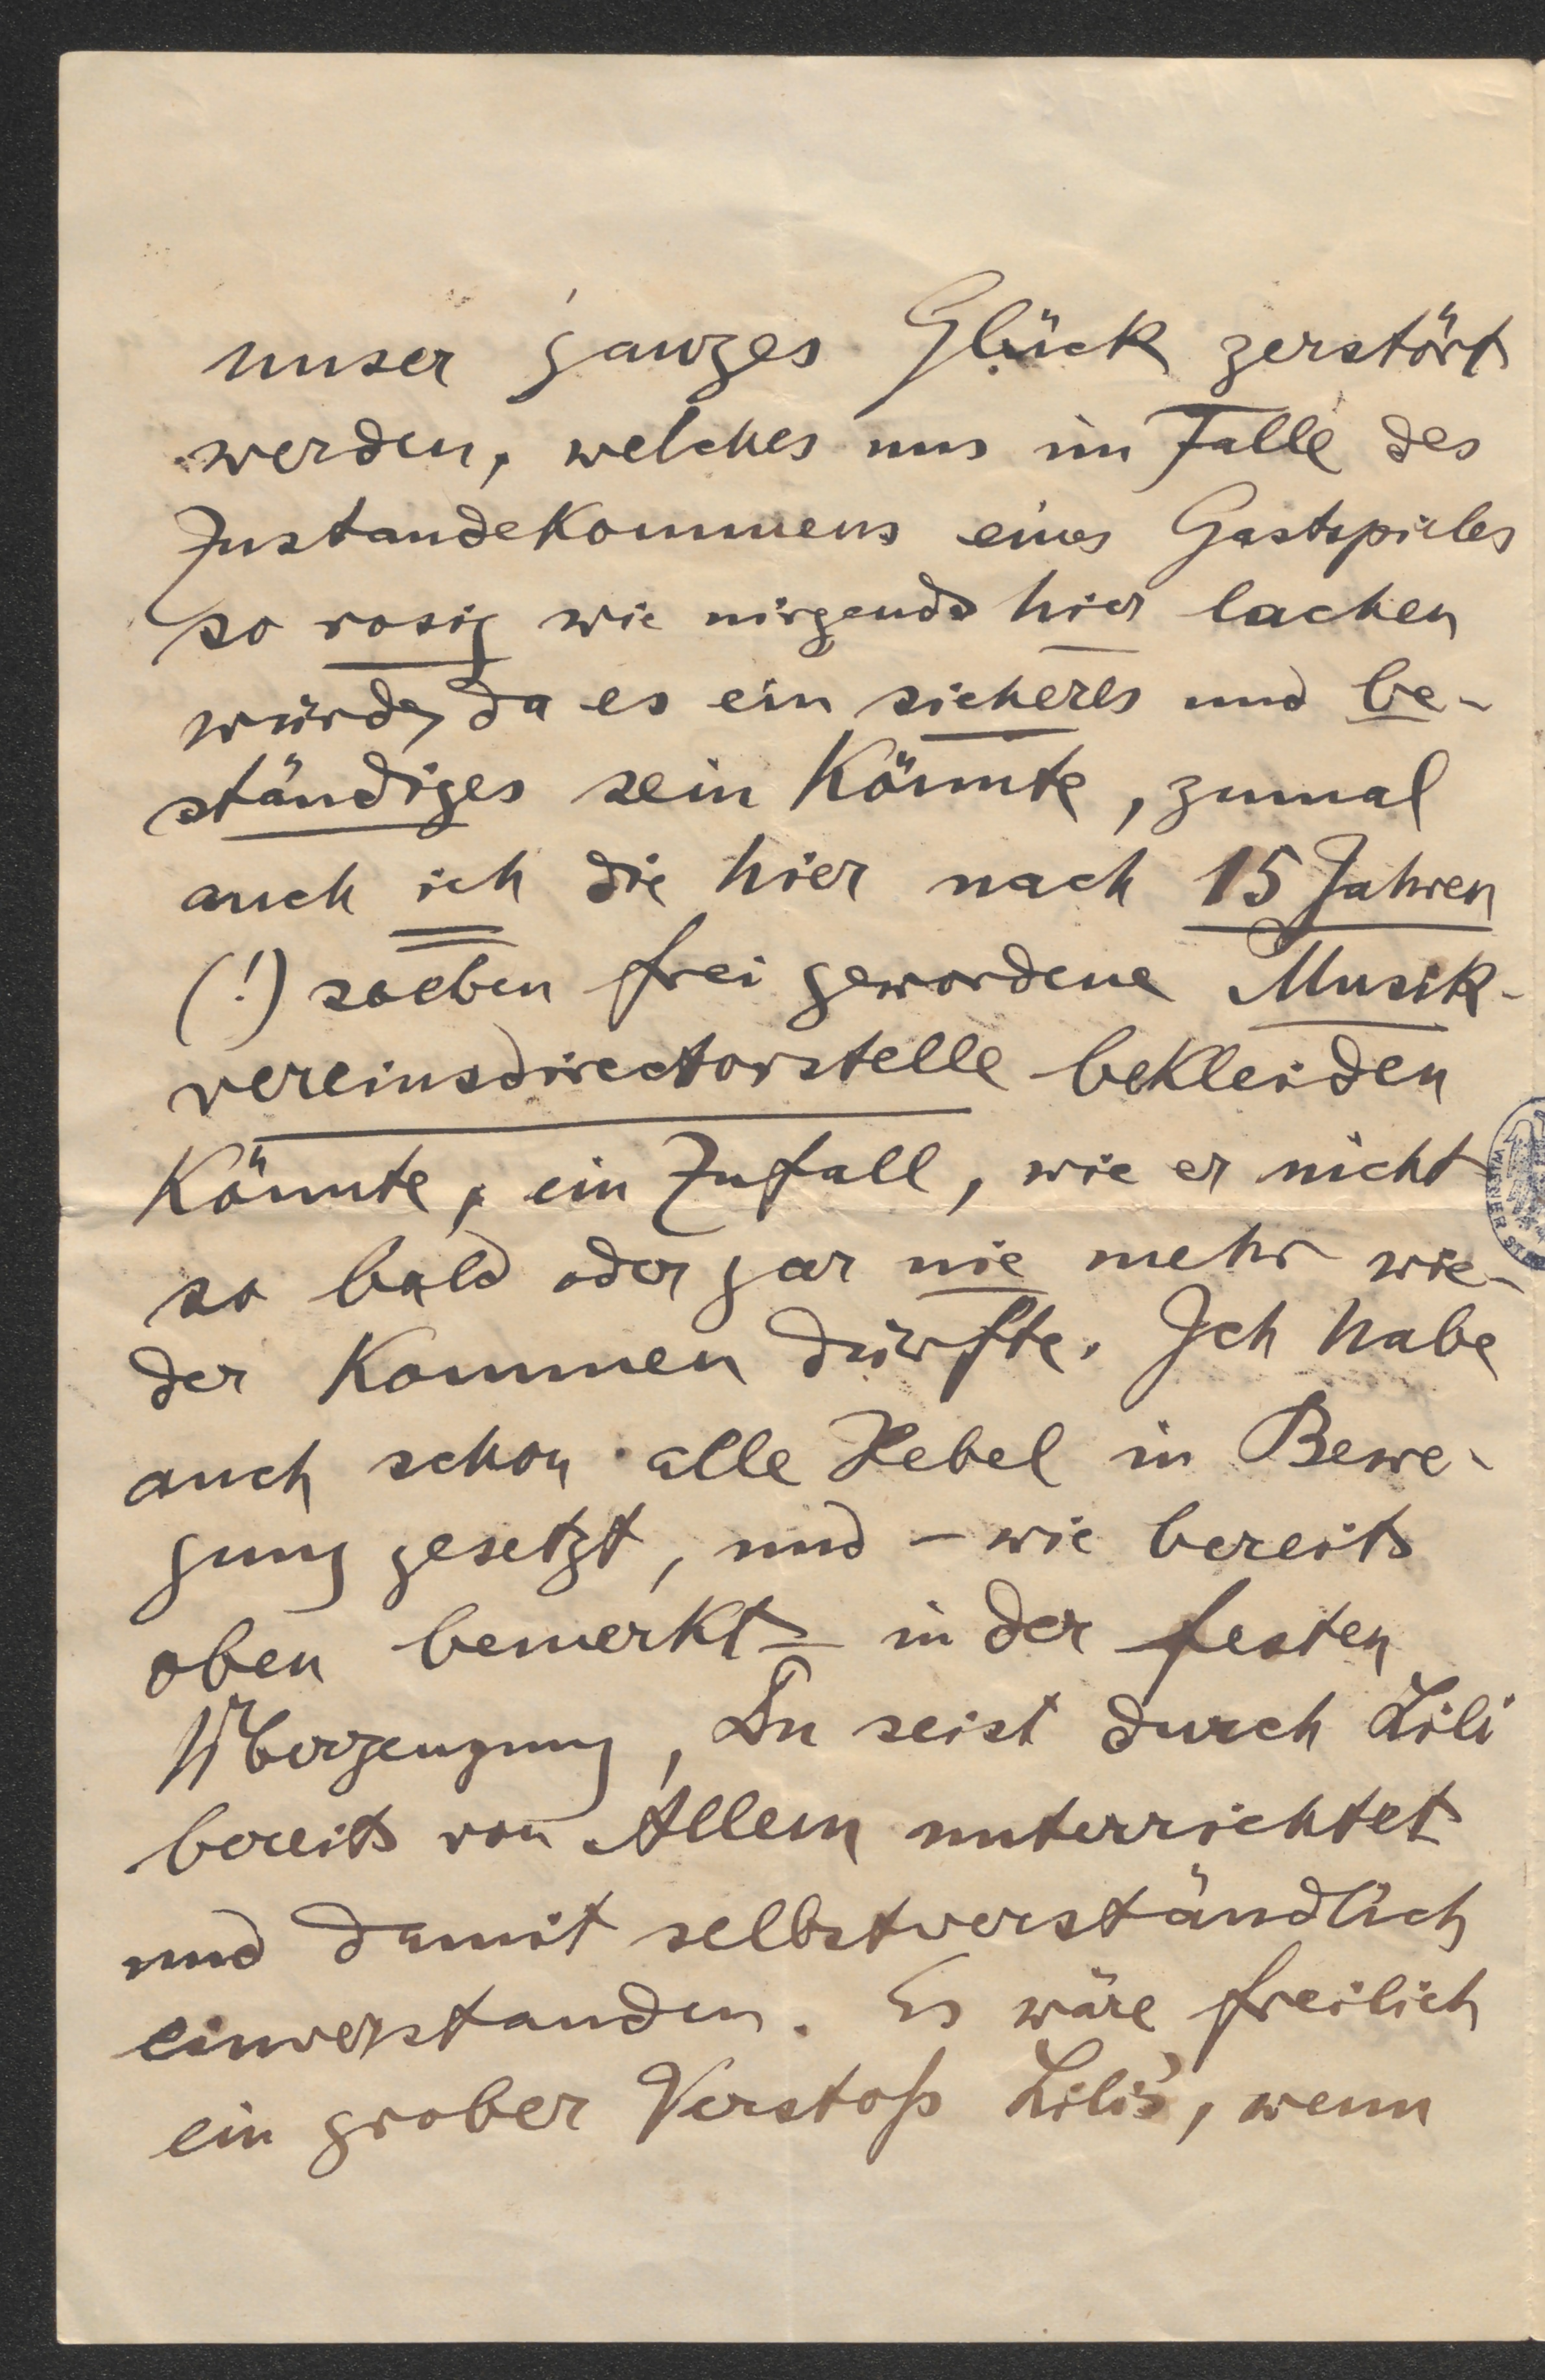 unser ganzes Glück zerstört
werden, welches uns im Falle des
Zustandekommens eines Gastspieles
so rosig wie nirgends hier lachen
würde, da es ein sicheres und be-
ständiges sein könnte, zumal
auch ich die hier nach 15 Jahren
(!) soeben frei gewordene Musik-
vereinsdirectorstelle bekleiden
könnte, ein Zufall, wie er nicht
so bald oder gar nie mehr wie-
der kommen dürfte. Ich habe
auch schon alle Hebel in Bewe-
gung gesetzt, und – wie bereits
oben bemerkt – in der festen
Überzeugung, Du seist durch Lili
bereits von Allem unterrichtet
und damit selbstverständlich
einverstanden. Es wäre freilich
ein grober Verstoß Lili's, wenn
WIENER